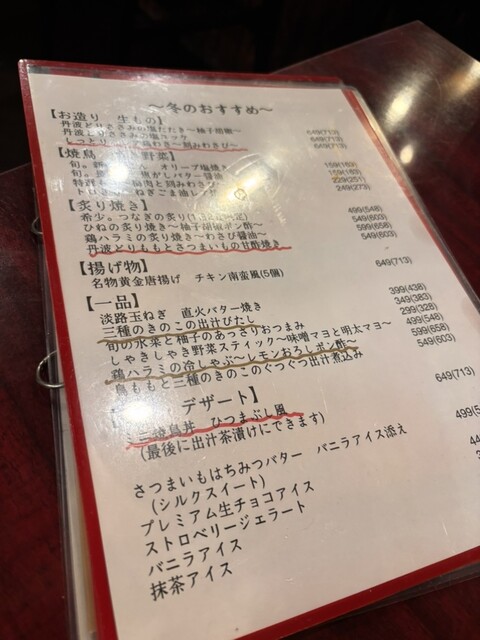 ～冬のおすすめ～
【お造り 生もの】
丹波どりささみの塩たたき～柚子胡椒～ 549(713)
丹波どりささみの塩ユッケ 549(713)
しっとり 刻みわさび～ 649(713)
【焼鳥 野菜】
旬。 オリーブ塩焼き 159(163)
旬。 焦がしバター醤油 159(163)
特選 肉と刻みわさび 229(251)
ねぎごま油 249(273)
【炙り焼き】
希少。つなぎの炙り 499(548)
ひねの炙り～柚子胡椒ポン酢～ 549(603)
鶏ハラミの炙り焼き～わさび醤油～ 599(658)
丹波どりももとさつまいもの甘酢焼き 549(603)
【揚げ物】
名物黄金唐揚げ チキン南蛮風(5個) 649(713)
【一品】
淡路玉ねぎ 直火バター焼き 399(438)
三種のきのこの出汁びたし 349(383)
旬の水菜と柚子のあっさりおつまみ 299(328)
しゃきしゃき野菜スティック～味噌マヨと明太マヨ～ 499(548)
鶏ハラミの冷しゃぶ～レモンおろしポン酢～ 599(658)
鳥ももと三種のきのこのぐつぐつ出汁煮込み 549(603)
デザート】
焼鳥丼 ひつまぶし風 649(713)
(最後に出汁茶漬けにできます)
さつまいもはちみつバター バニラアイス添え
(シルクスイート)
プレミアム生チョコアイス
ストロベリージェラート
バニラアイス
抹茶アイス